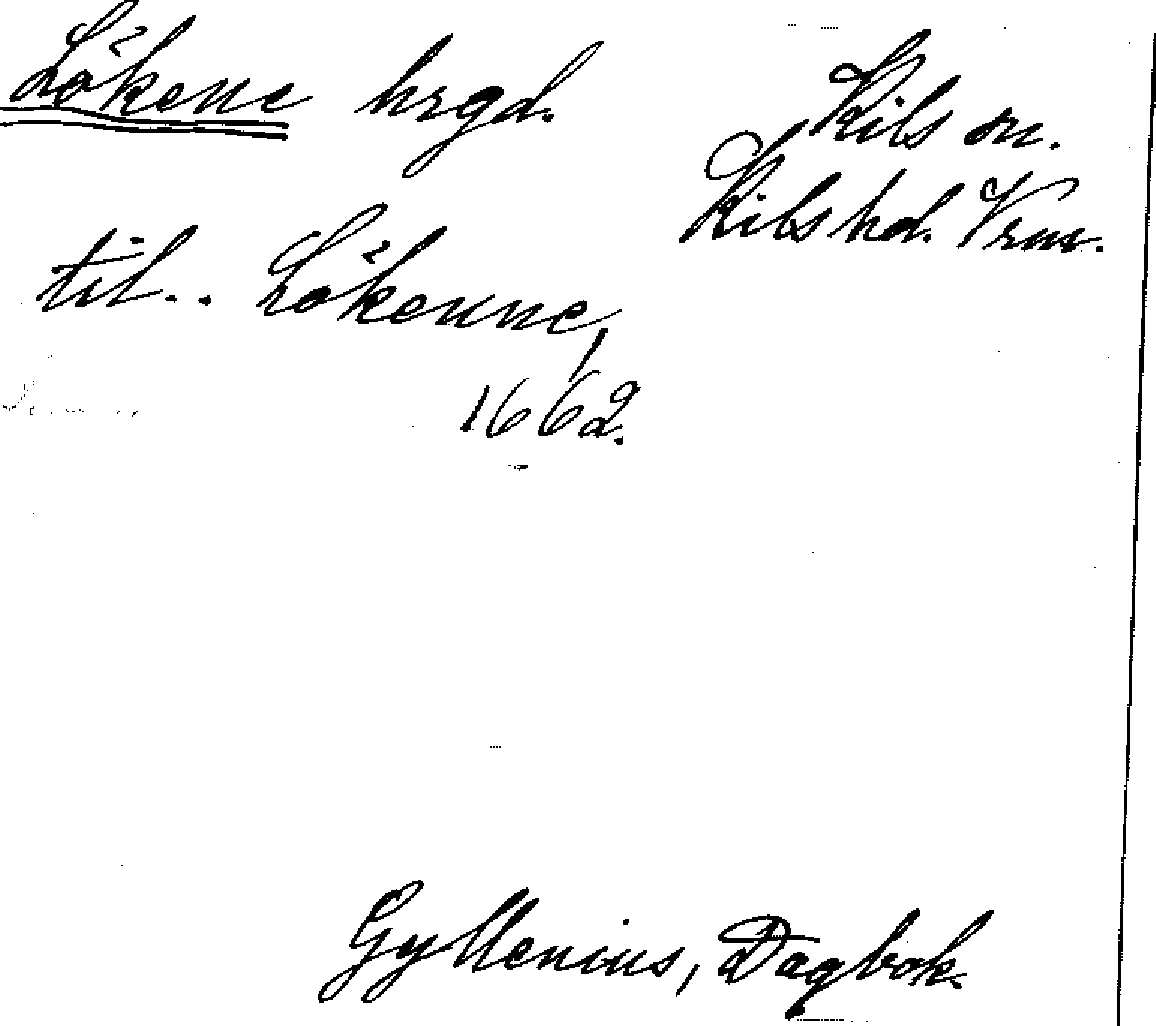 Lökene hrgd.
Kils sn.
Kils hd. Vrm.
til.. Lökenne,
1662.
Gyllenius, Dagbok.